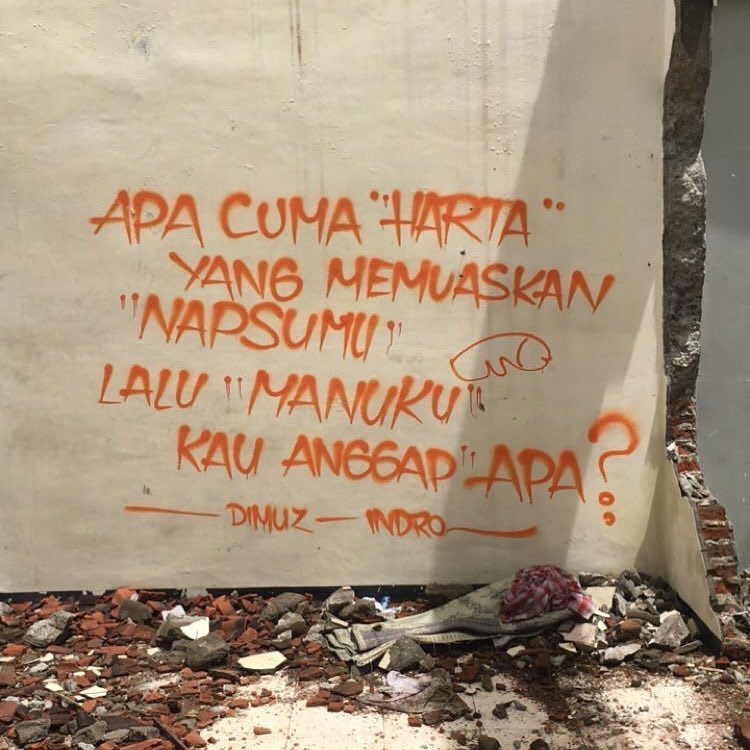 APA CUMA "HARTA"
YANG MEMUASKAN
"NAPSUMU"
LALU "MANUKU"
KAU ANGGAP "APA?
— DIMUZ — INDRO —